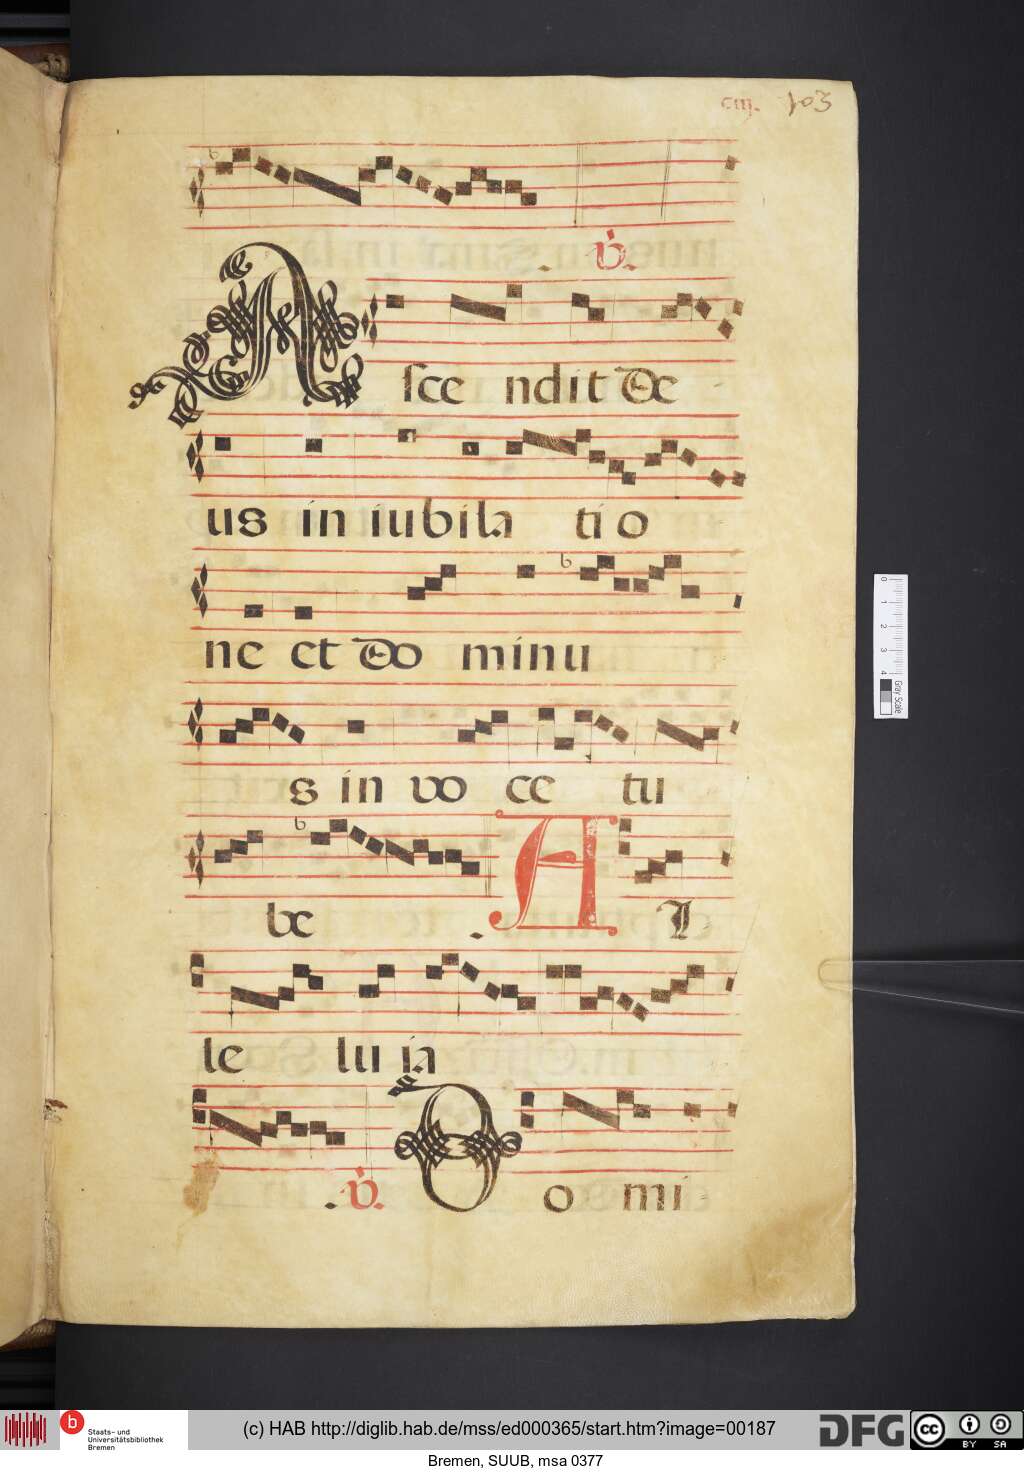 ciij. 103
℣.
Asce ndit De
us in iubila tio
ne et Do minu
s in vo ce tu
be . A l
le lu ia
. ℣. D o mi
0 1 2 3 4
Gray Scale
b Staats- und
Universitätsbibliothek
Bremen
(c) HAB http://diglib.hab.de/mss/ed000365/start.htm?image=00187
DFG
cc BY SA
Bremen, SUUB, msa 0377